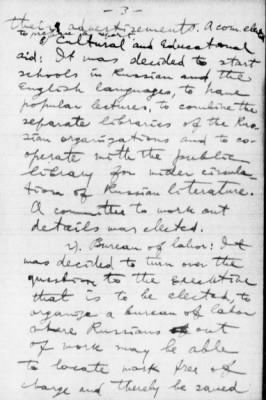 - 3 -
their advertisements. A com. elected
to
Cultural and Educational
aid: It was decided to start
schools in Russian and the
English languages, to have
popular lectures, to combine the
separate libraries of the Rus-
sian organizations and to co-
operate with the public
library for wider circula-
tion of Russian literature.
A committee to work out
details was elected.
2). Bureau of labor: It
was decided to turn over the
question to the executive
that is to be elected, to
organize a bureau of labor
where Russians out
of work may be able
to locate work free of
charge and thereby be saved